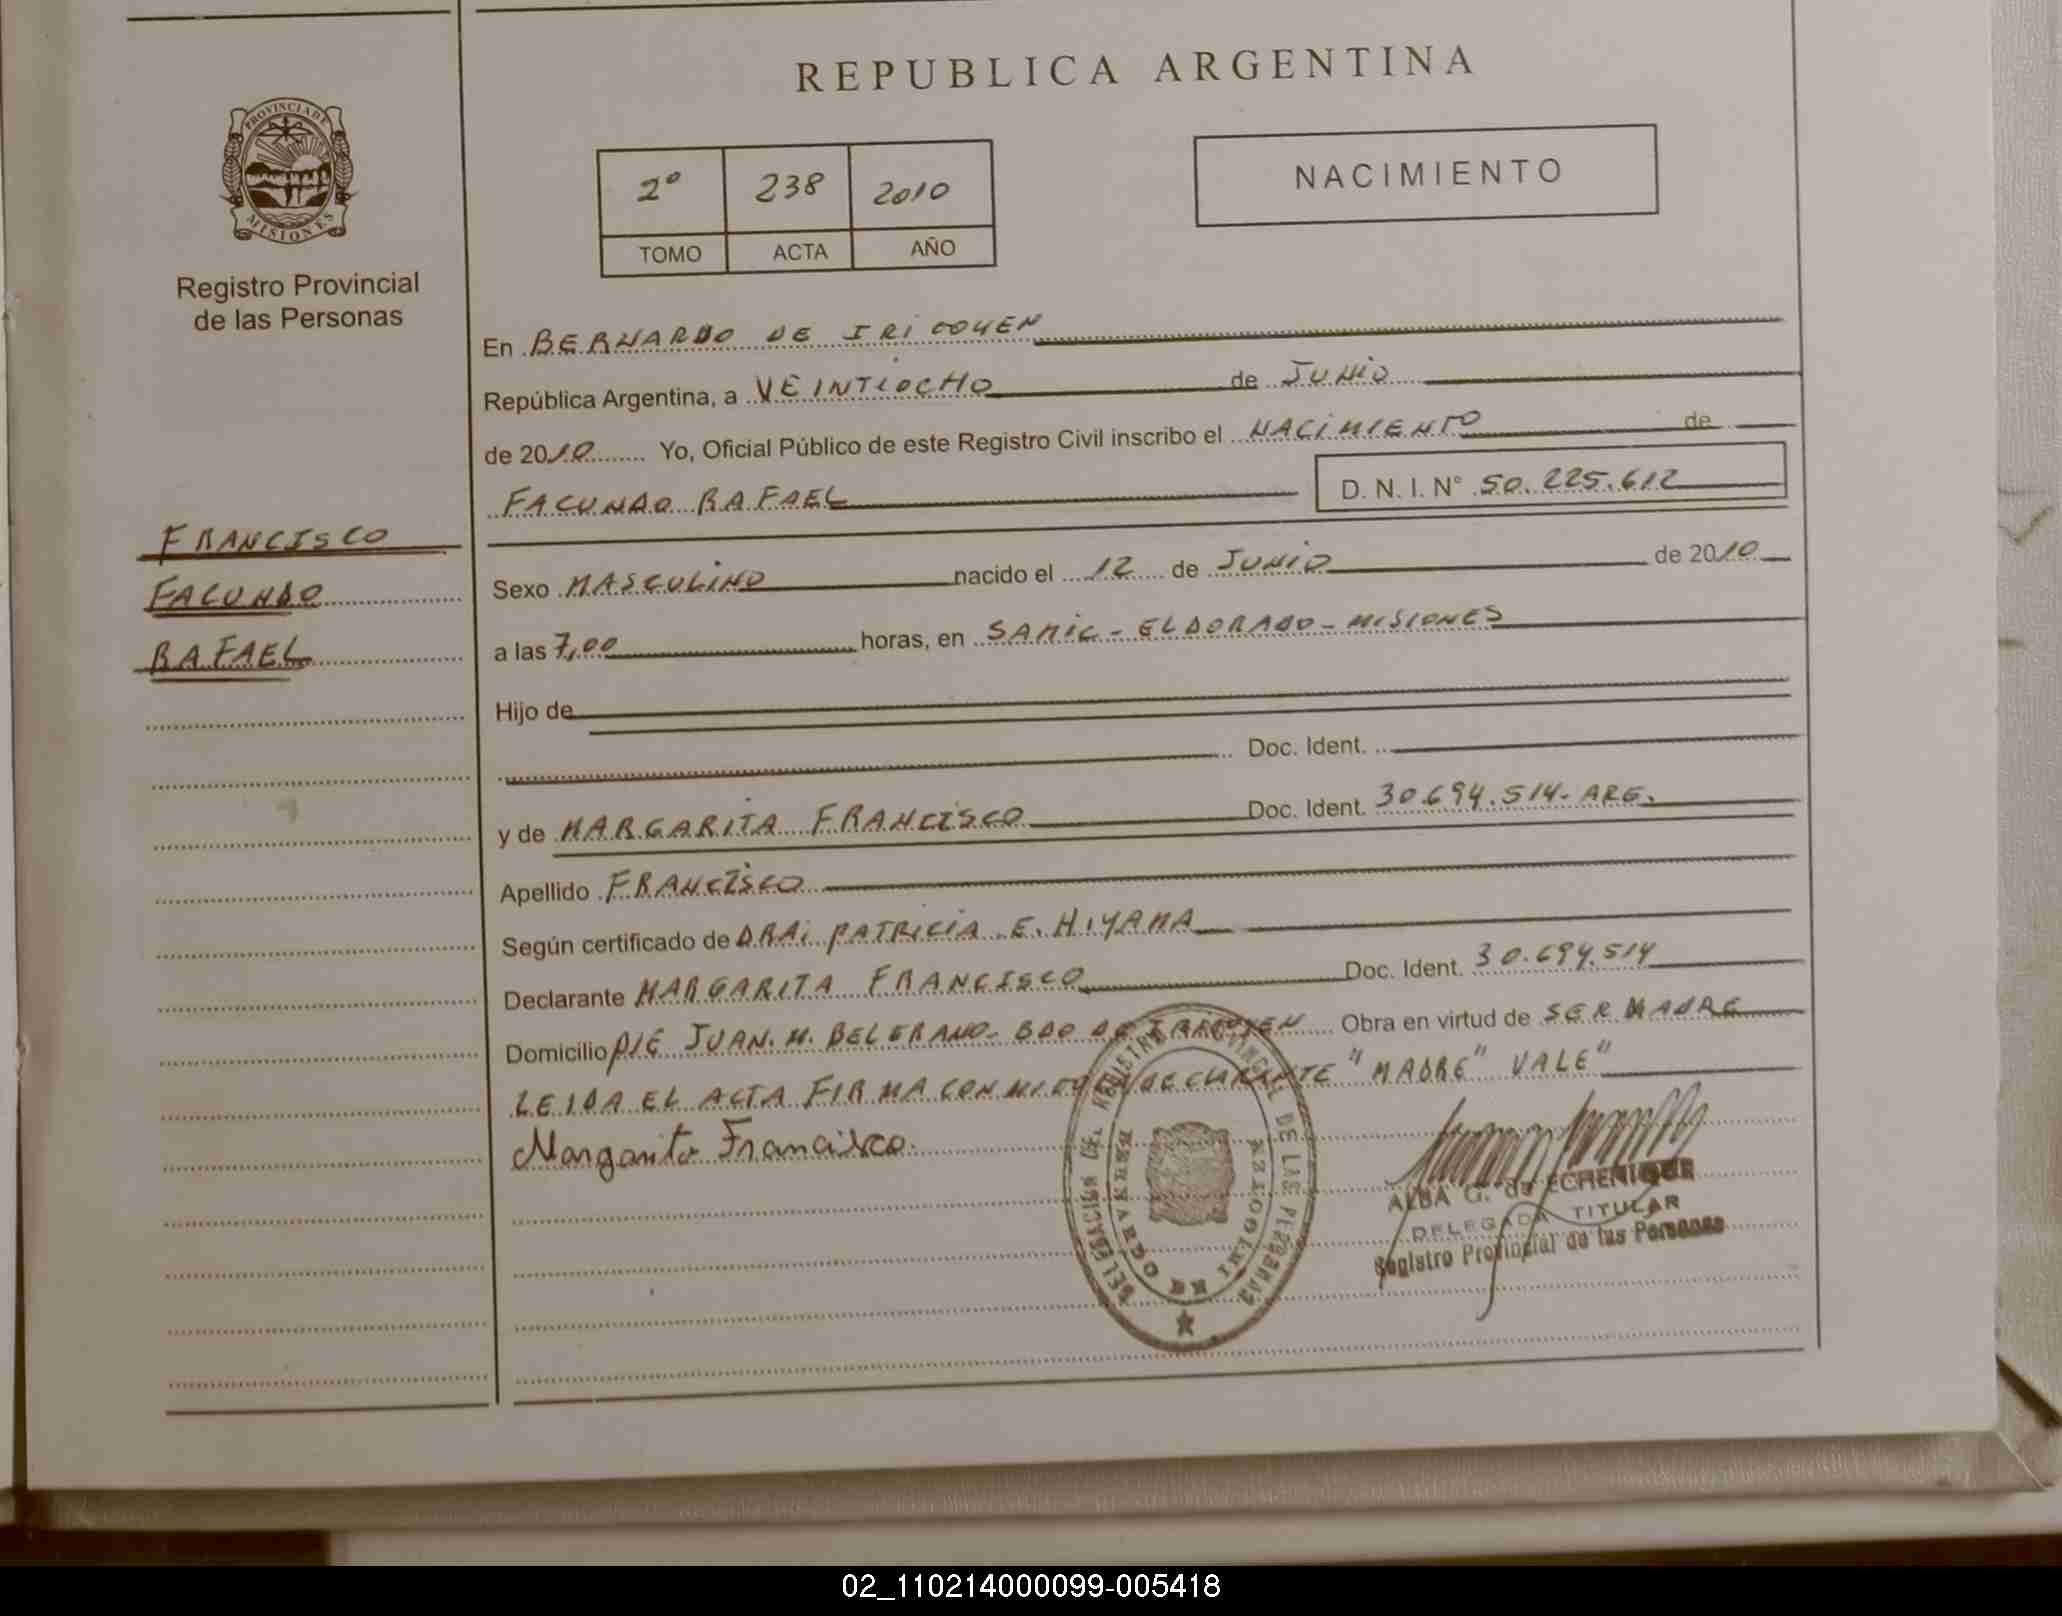 REPUBLICA ARGENTINA
PROVINCIA DE
MISIONES
Registro Provincial
de las Personas
2º 238 2010
TOMO ACTA AÑO
NACIMIENTO
FRANCISCO
FACUNDO
RAFAEL
En BERNARDO DE IRIGOYEN
República Argentina, a VEINTIOCHO de JUNIO
de 2010 Yo, Oficial Público de este Registro Civil inscribo el NACIMIENTO de
FACUNDO RAFAEL D. N. I. N° 50.225.612
Sexo MASCULINO nacido el 12 de JUNIO de 2010
a las 7,00 horas, en SAMIC - ELDORADO - MISIONES
Hijo de
Doc. Ident.
y de MARGARITA FRANCISCO Doc. Ident. 30.694.514-ARG.
Apellido FRANCISCO
Según certificado de DRA: PATRICIA E. HIYAMA
Declarante MARGARITA FRANCISCO Doc. Ident. 30.694.514
Domicilio PJE JUAN. M. BELGRANO - BDO DE IRIGOYEN Obra en virtud de SER MADRE
LEIDA EL ACTA FIRMA CONMIGO LA DECLARANTE "MADRE" VALE"
Margarita Francisco.
DELEGACION DEL REGISTRO PROVINCIAL DE LAS PERSONAS
BERNARDO DE IRIGOYEN
ALBA G. de ECHENIQUE
DELEGADA TITULAR
Registro Provincial de las Personas
02_110214000099-005418